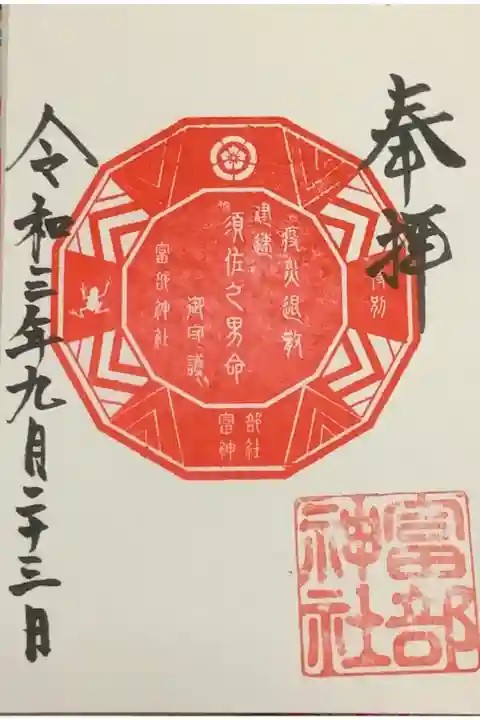 奉拝
特別
疫災退散
建継
須佐之男命
御守護
富部神社
富部神社
富部神社
令和三年九月二十三日